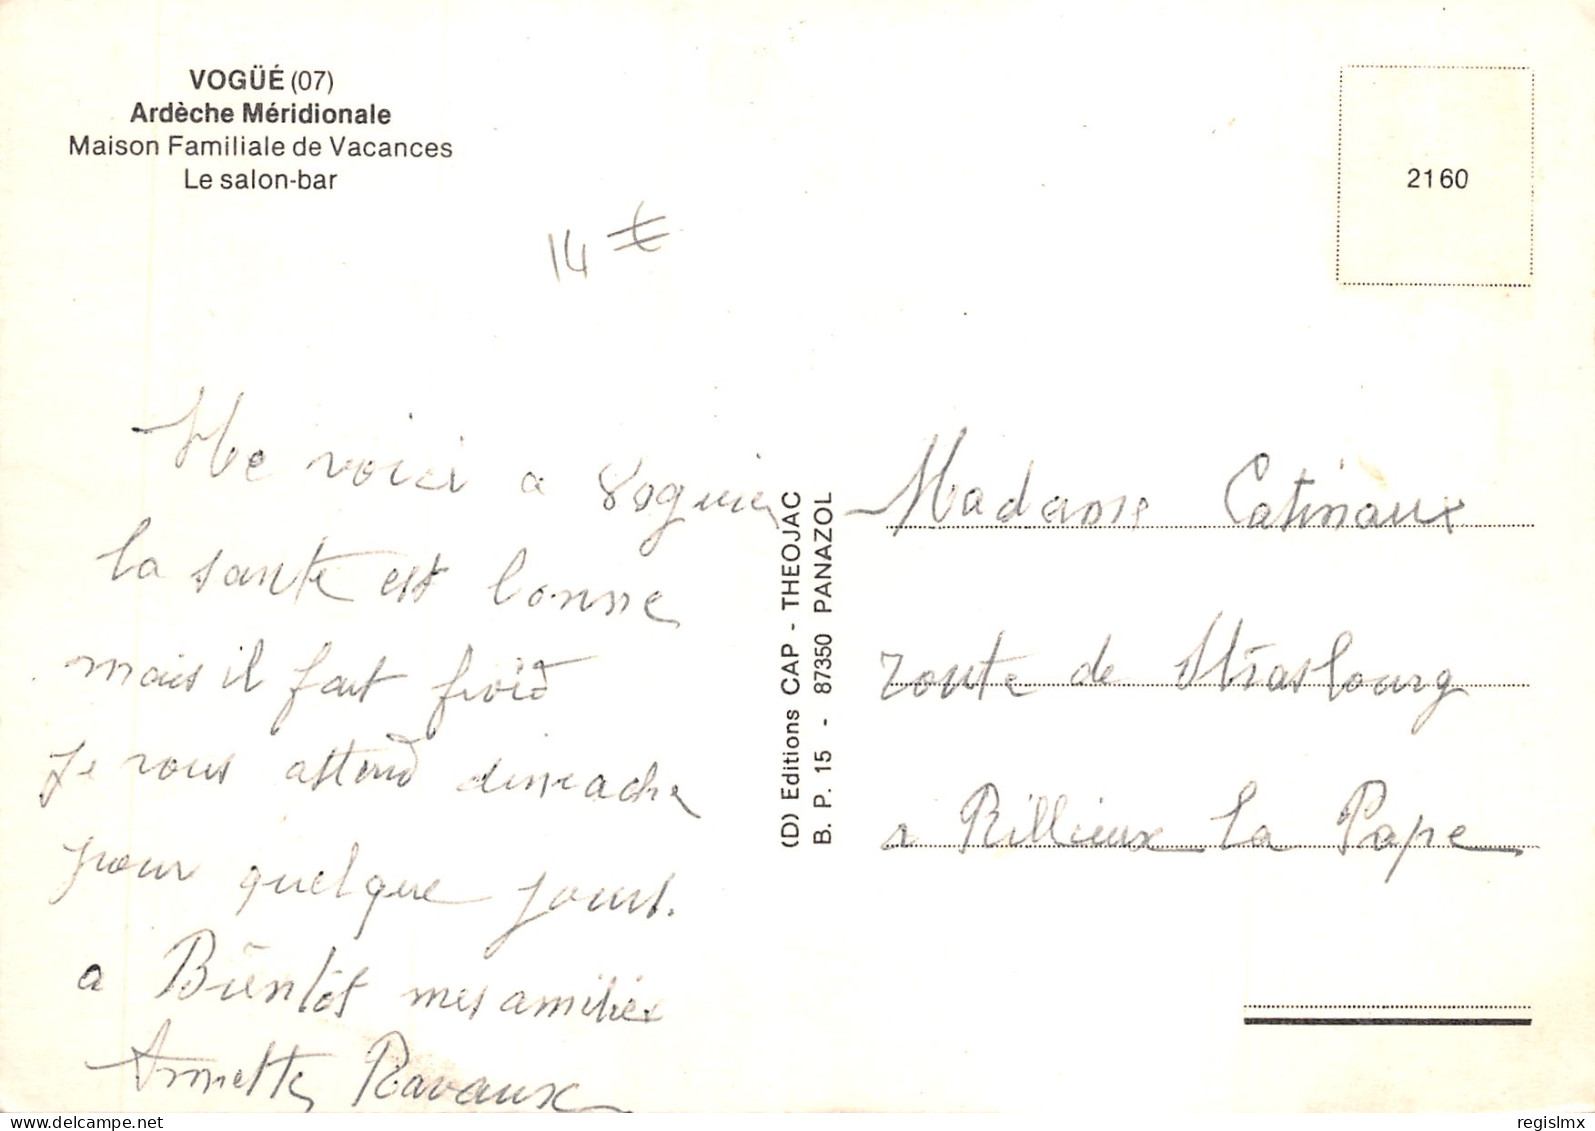 VOGÜÉ (07)
Ardèche Méridionale
Maison Familiale de Vacances
Le salon-bar
2160
14 €
Me voici a
la sante est bonne
mais il fait froid
Je vous attend
pour quelque jours.
a Bientôt mes amitiés
Annette Ravaux
(D) Editions CAP - THEOJAC
B. P. 15 - 87350 PANAZOL
Madame Catinaux
route de Strasbourg
a Rillieux La Pape
www.delcampe.net
regislmx